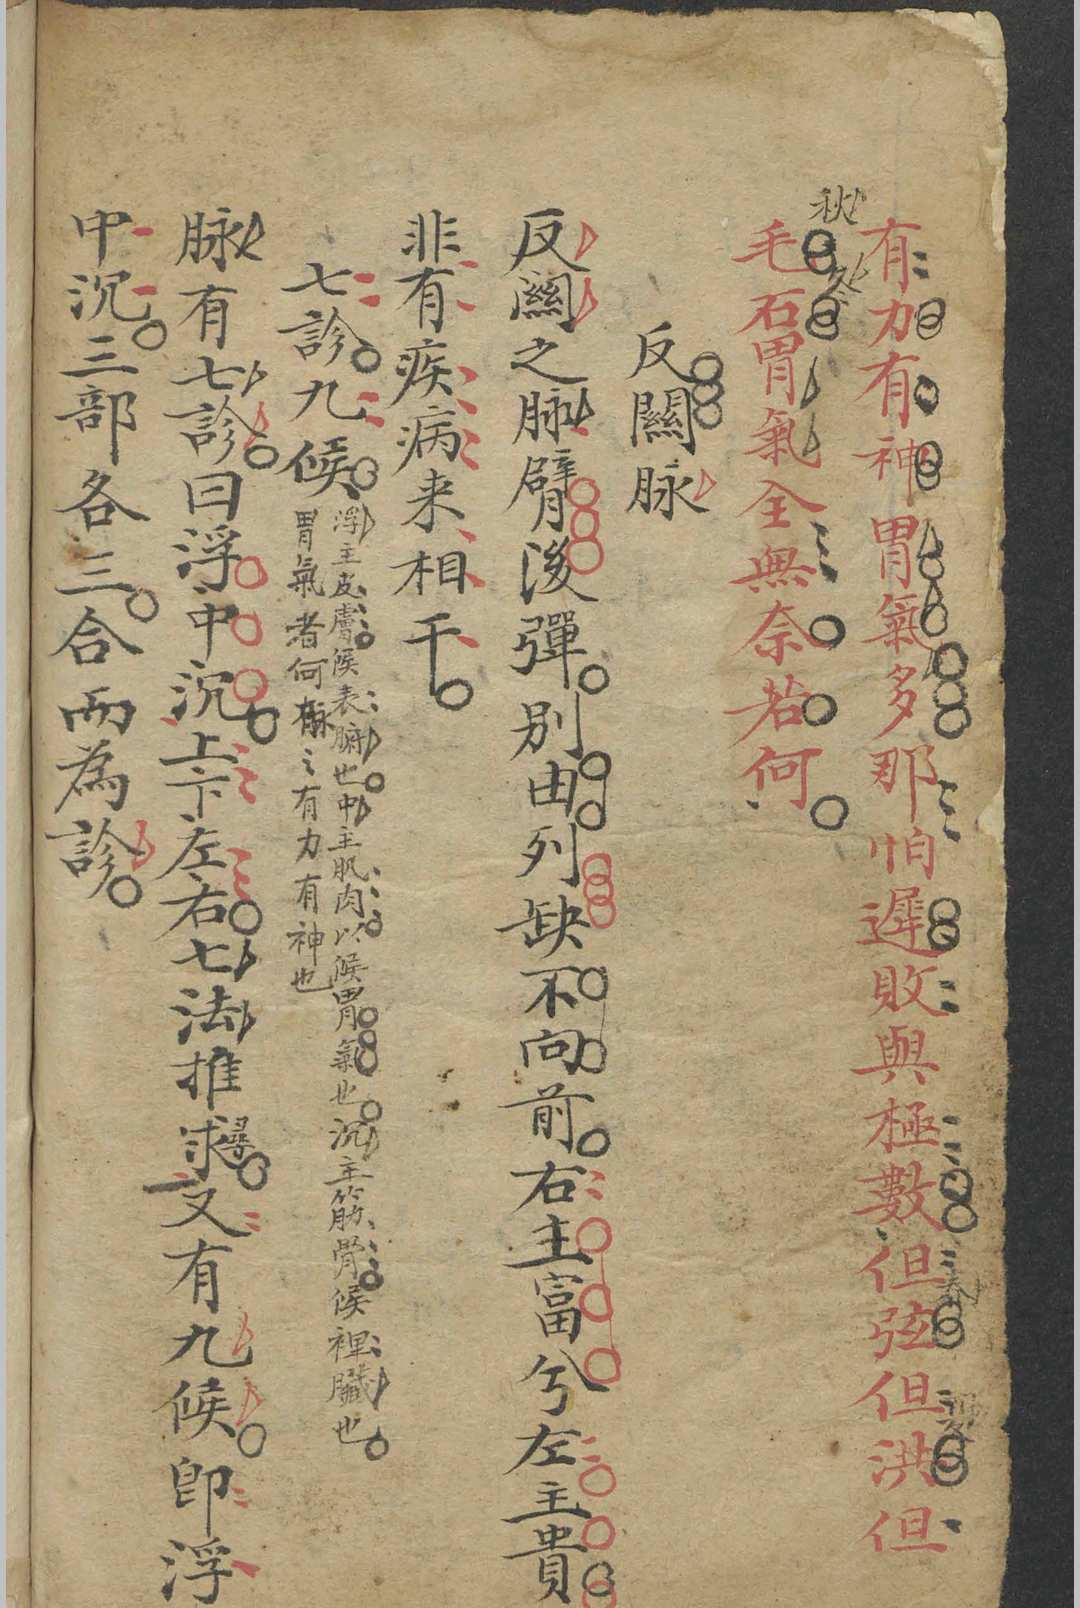 有力有神胃氣多那怕遲敗與極數但弦但洪但
春
秋
冬
毛石胃氣全無奈若何
反關脉
反關之脉臂後彈別由列缺不向前右主富兮左主貴
非有疾病来相干
七診九候
浮主皮膚候表腑也中主肌肉以候胃氣也沉主筋骨候裡臟也
胃氣者何脉之有力有神也
脉有七診曰浮中沉上下左右七法推求尋又有九候即浮
中沉三部各三合而為診